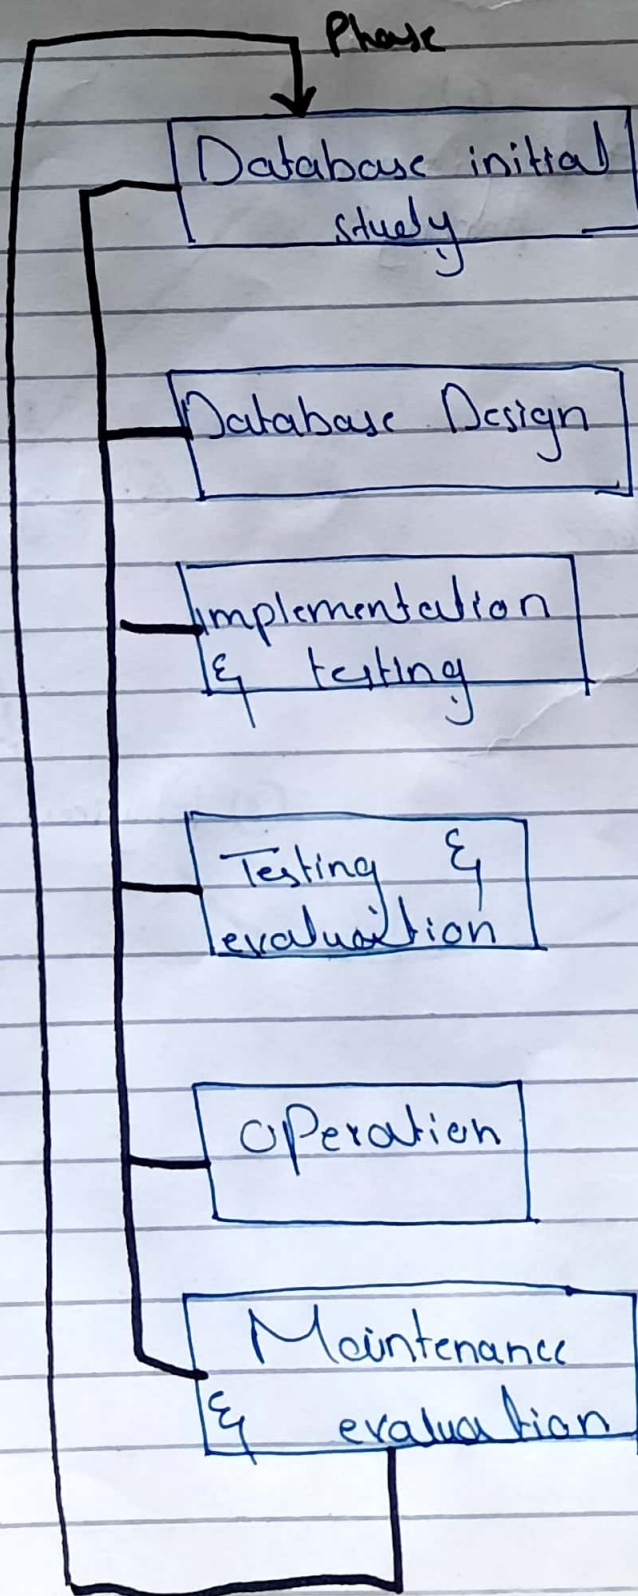 Phase
Database initial
study
Database Design
implementation
& testing
Testing &
evaluation
operation
Maintenance
& evaluation